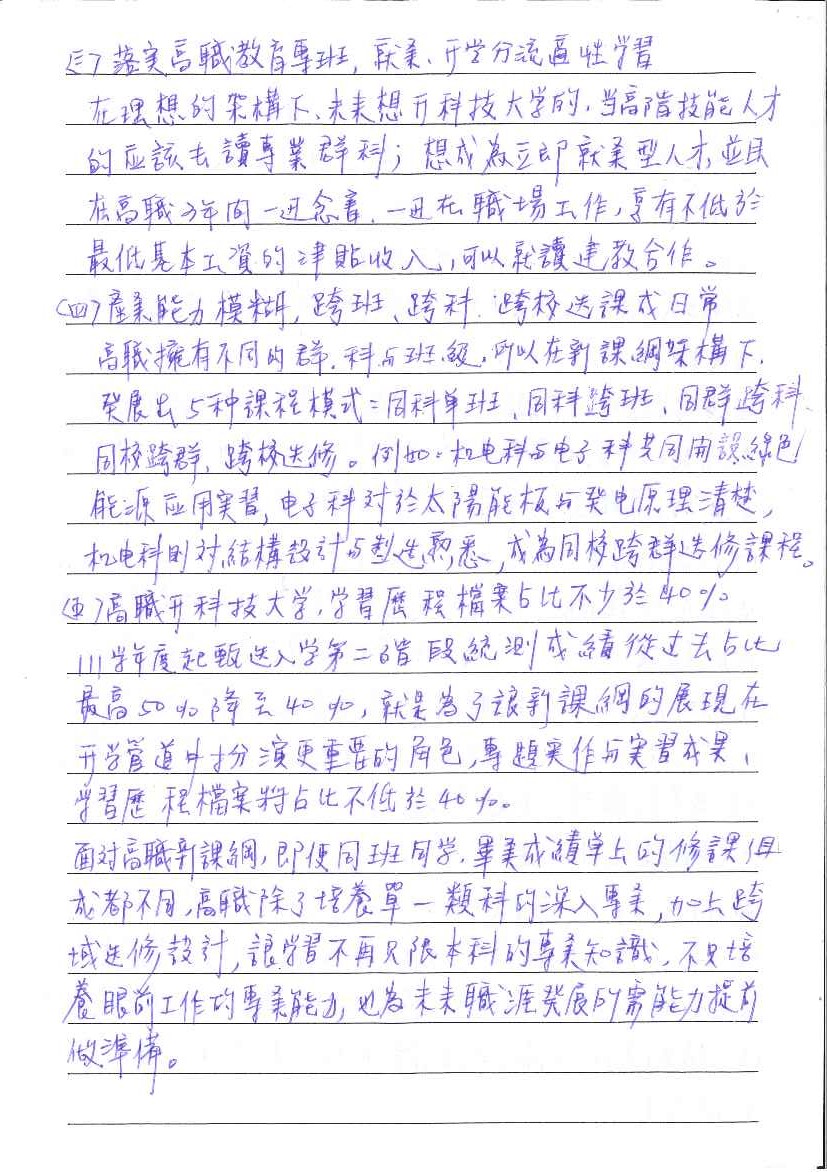 (三)落実高職教育專班, 就業、升学分流適性学習
在理想的架構下、未來想升科技大学的, 当高階技能人才
的应該去讀專業群科; 想成為立即就業型人才, 並且
在高職3年间一边念書, 一边在職場工作, 享有不低於
最低基本工資的津貼收入, 可以就讀建教合作。
(四)產業能力模糊, 跨班、跨科、跨校选課成日常
高職擁有不同的群、科与班級, 所以在新課綱架構下,
発展出5种課程模式=同科单班、同科跨班、同群跨科、
同校跨群、跨校选修。例如: 机电科与电子科共同開設綠色
能源应用実習, 电子科对於太陽能板与発电原理清楚,
机电科則对結構設計与型造熟悉, 成為同校跨群选修課程。
(五)高職升科技大学, 学習歷程檔案占比不少於40%
111学年度起甄选入学第二階段統測成績從过去占比
最高50%降至40%, 就是為了讓新課綱的展現在
升学管道中扮演更重要的角色, 專題実作与実習成果、
学習歷程檔案将占比不低於40%。
面对高職新課綱, 即便同班同学, 畢業成績单上的修課組
成都不同, 高職除了培養單一類科的深入專業, 加上跨
域选修設計, 讓学習不再只限本科的專業知識、不只培
養眼前工作的專業能力, 也為未來職涯発展所需能力提前
做準備。